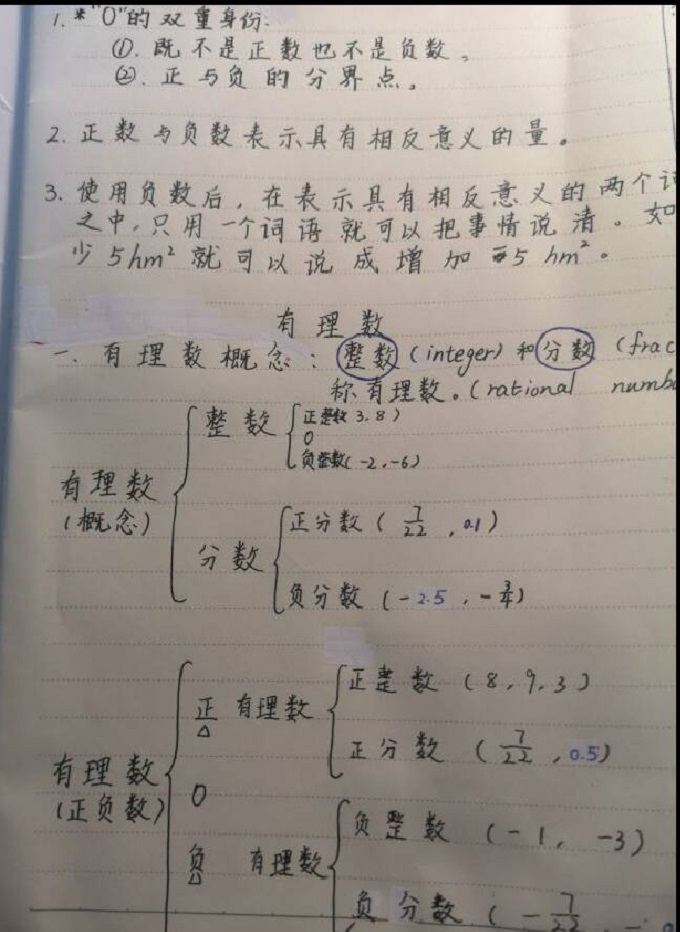 1. * "0"的双重身份:
①. 既不是正数也不是负数。
②. 正与负的分界点。
2. 正数与负数表示具有相反意义的量。
3. 使用负数后，在表示具有相反意义的两个
之中,只用一个词语就可以把事情说清。如
少5hm²就可以说成增加 -5 hm²。
有理数
一、有理数概念：整数(integer)和分数(frac
称有理数。(rational numb
有理数
(概念)
整数
正整数 3,8)
0
负整数(-2,-6)
分数
正分数( 7/22 ,0.1)
负分数(-2.5,-3/4)
有理数
(正负数)
正有理数
正整数(8,9,3)
正分数(7/22,0.5)
0
负有理数
负整数(-1,-3)
负分数(-7/22